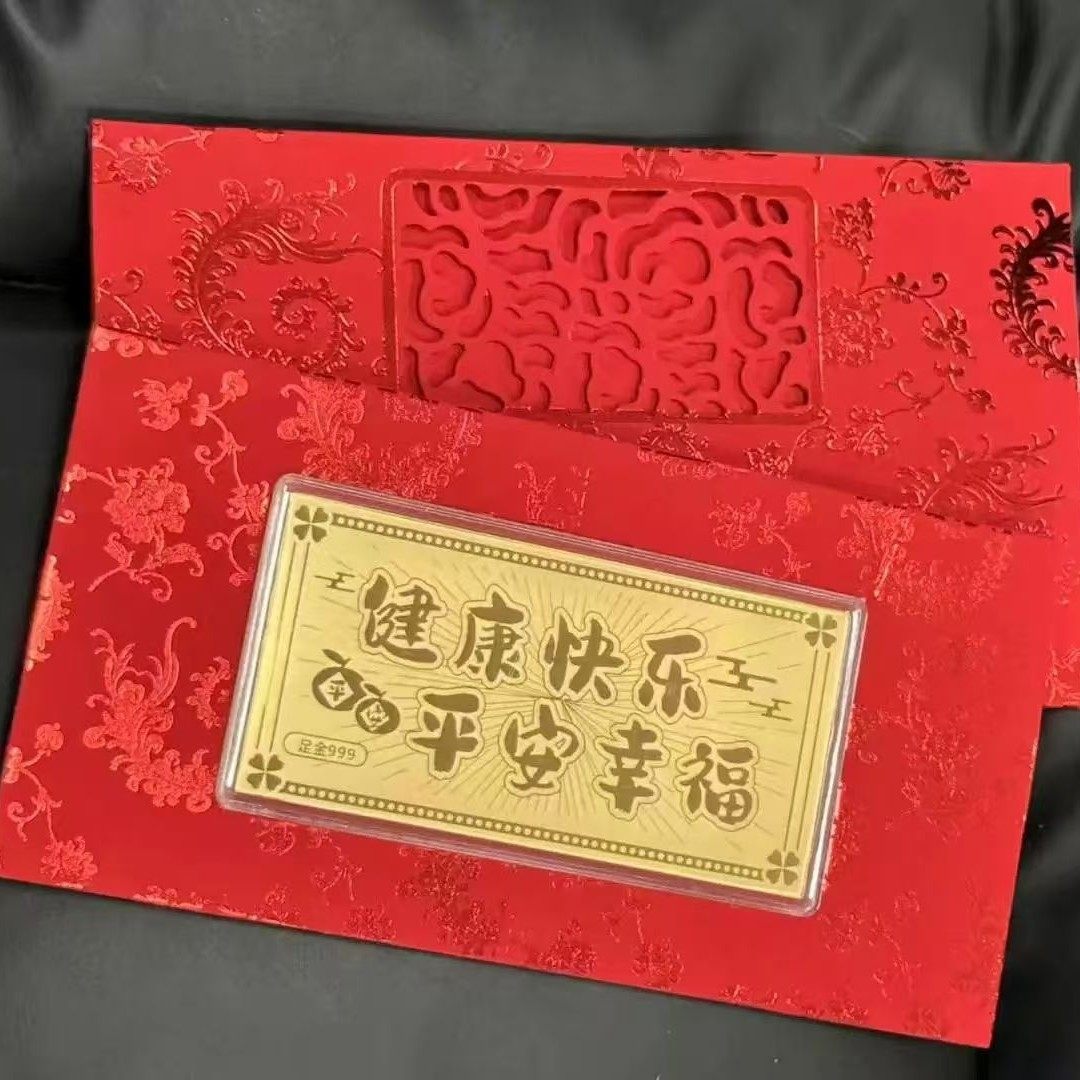 健康快乐
平安幸福
平
足金999